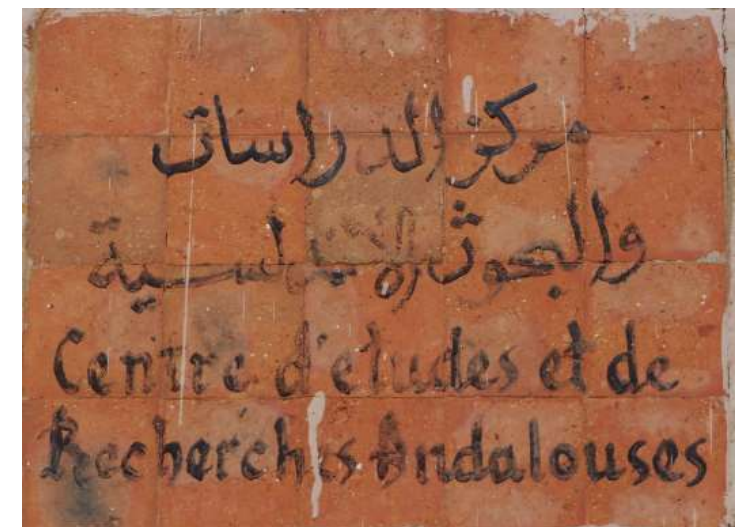 مركز الدراسات
والبحوث الأندلسية
Centre d'etudes et de
Recherches Andalouses